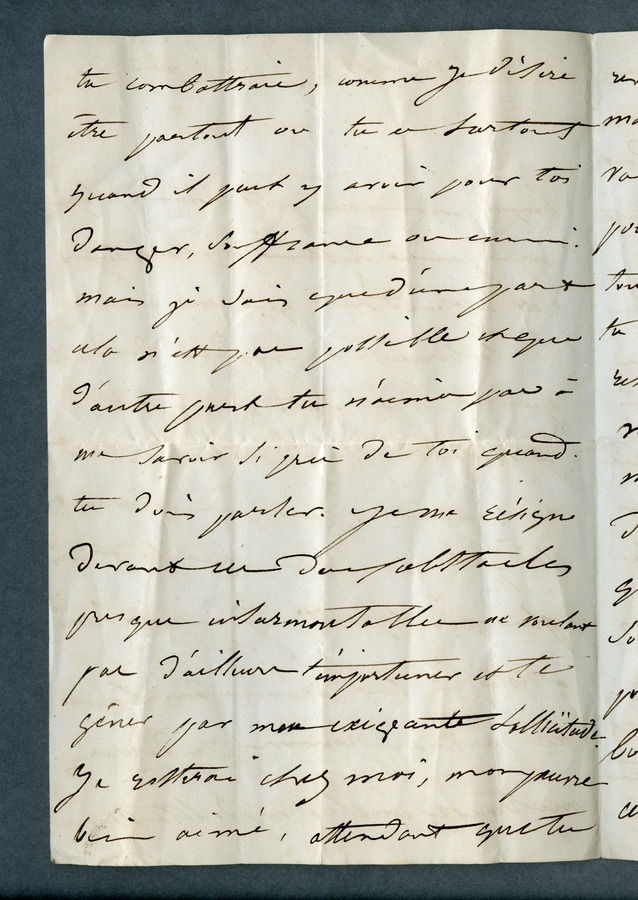 tu combattrais, comme je désire
être partout où tu es surtout
quand il peut y avoir pour toi
danger, souffrance ou ennui.
mais je sais que d'une part
cela n'est pas possible et que
d'autre part tu n'aimes pas à
me savoir si près de toi quand
tu dois parler. Je me résigne
devant ces deux obstacles
presque insurmontables ne voulant
pas d'ailleurs t'importuner et te
gêner par mon exigeante sollicitude.
Je resterai chez moi, mon pauvre
bien aimé, attendant que tu